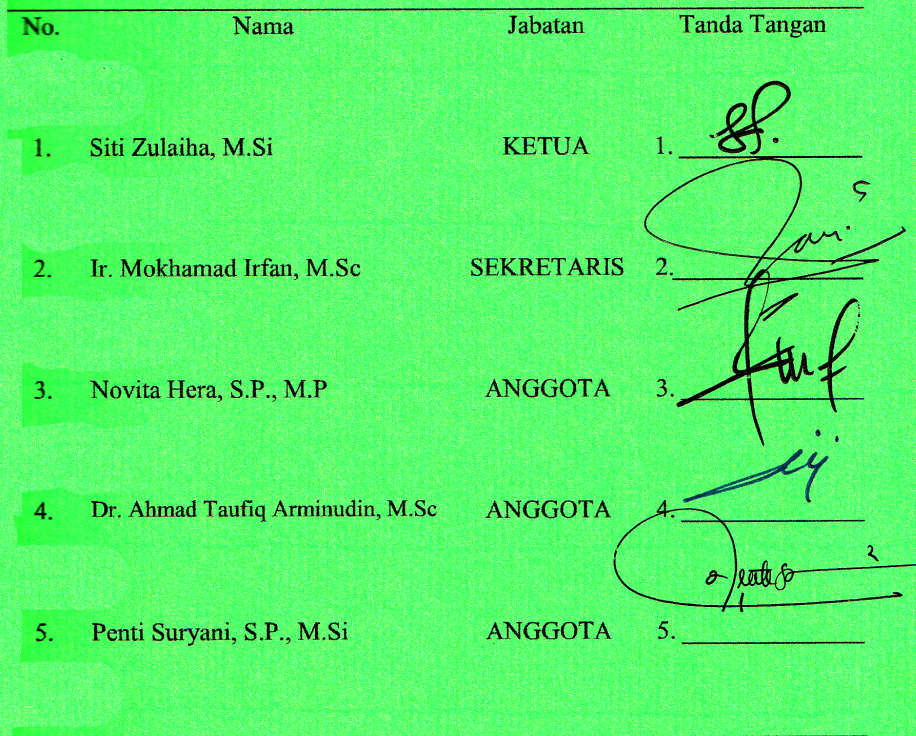 No. Nama Jabatan Tanda Tangan
1. Siti Zulaiha, M.Si KETUA 1.
2. Ir. Mokhamad Irfan, M.Sc SEKRETARIS 2.
3. Novita Hera, S.P., M.P ANGGOTA 3.
4. Dr. Ahmad Taufiq Arminudin, M.Sc ANGGOTA 4.
5. Penti Suryani, S.P., M.Si ANGGOTA 5.